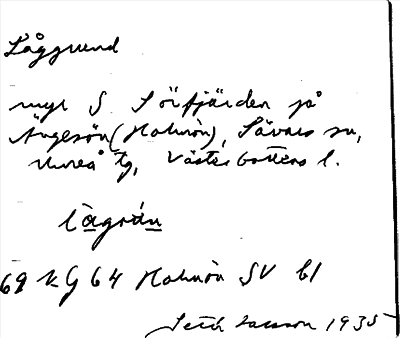 Låggrund
myr S Sörfjärden på
Ängesön (Holmön), Sävars sn,
Umeå tg, Västerbottens l.
làgrán
69 KG 64 Holmön SV bl
Seth Larsson 1935